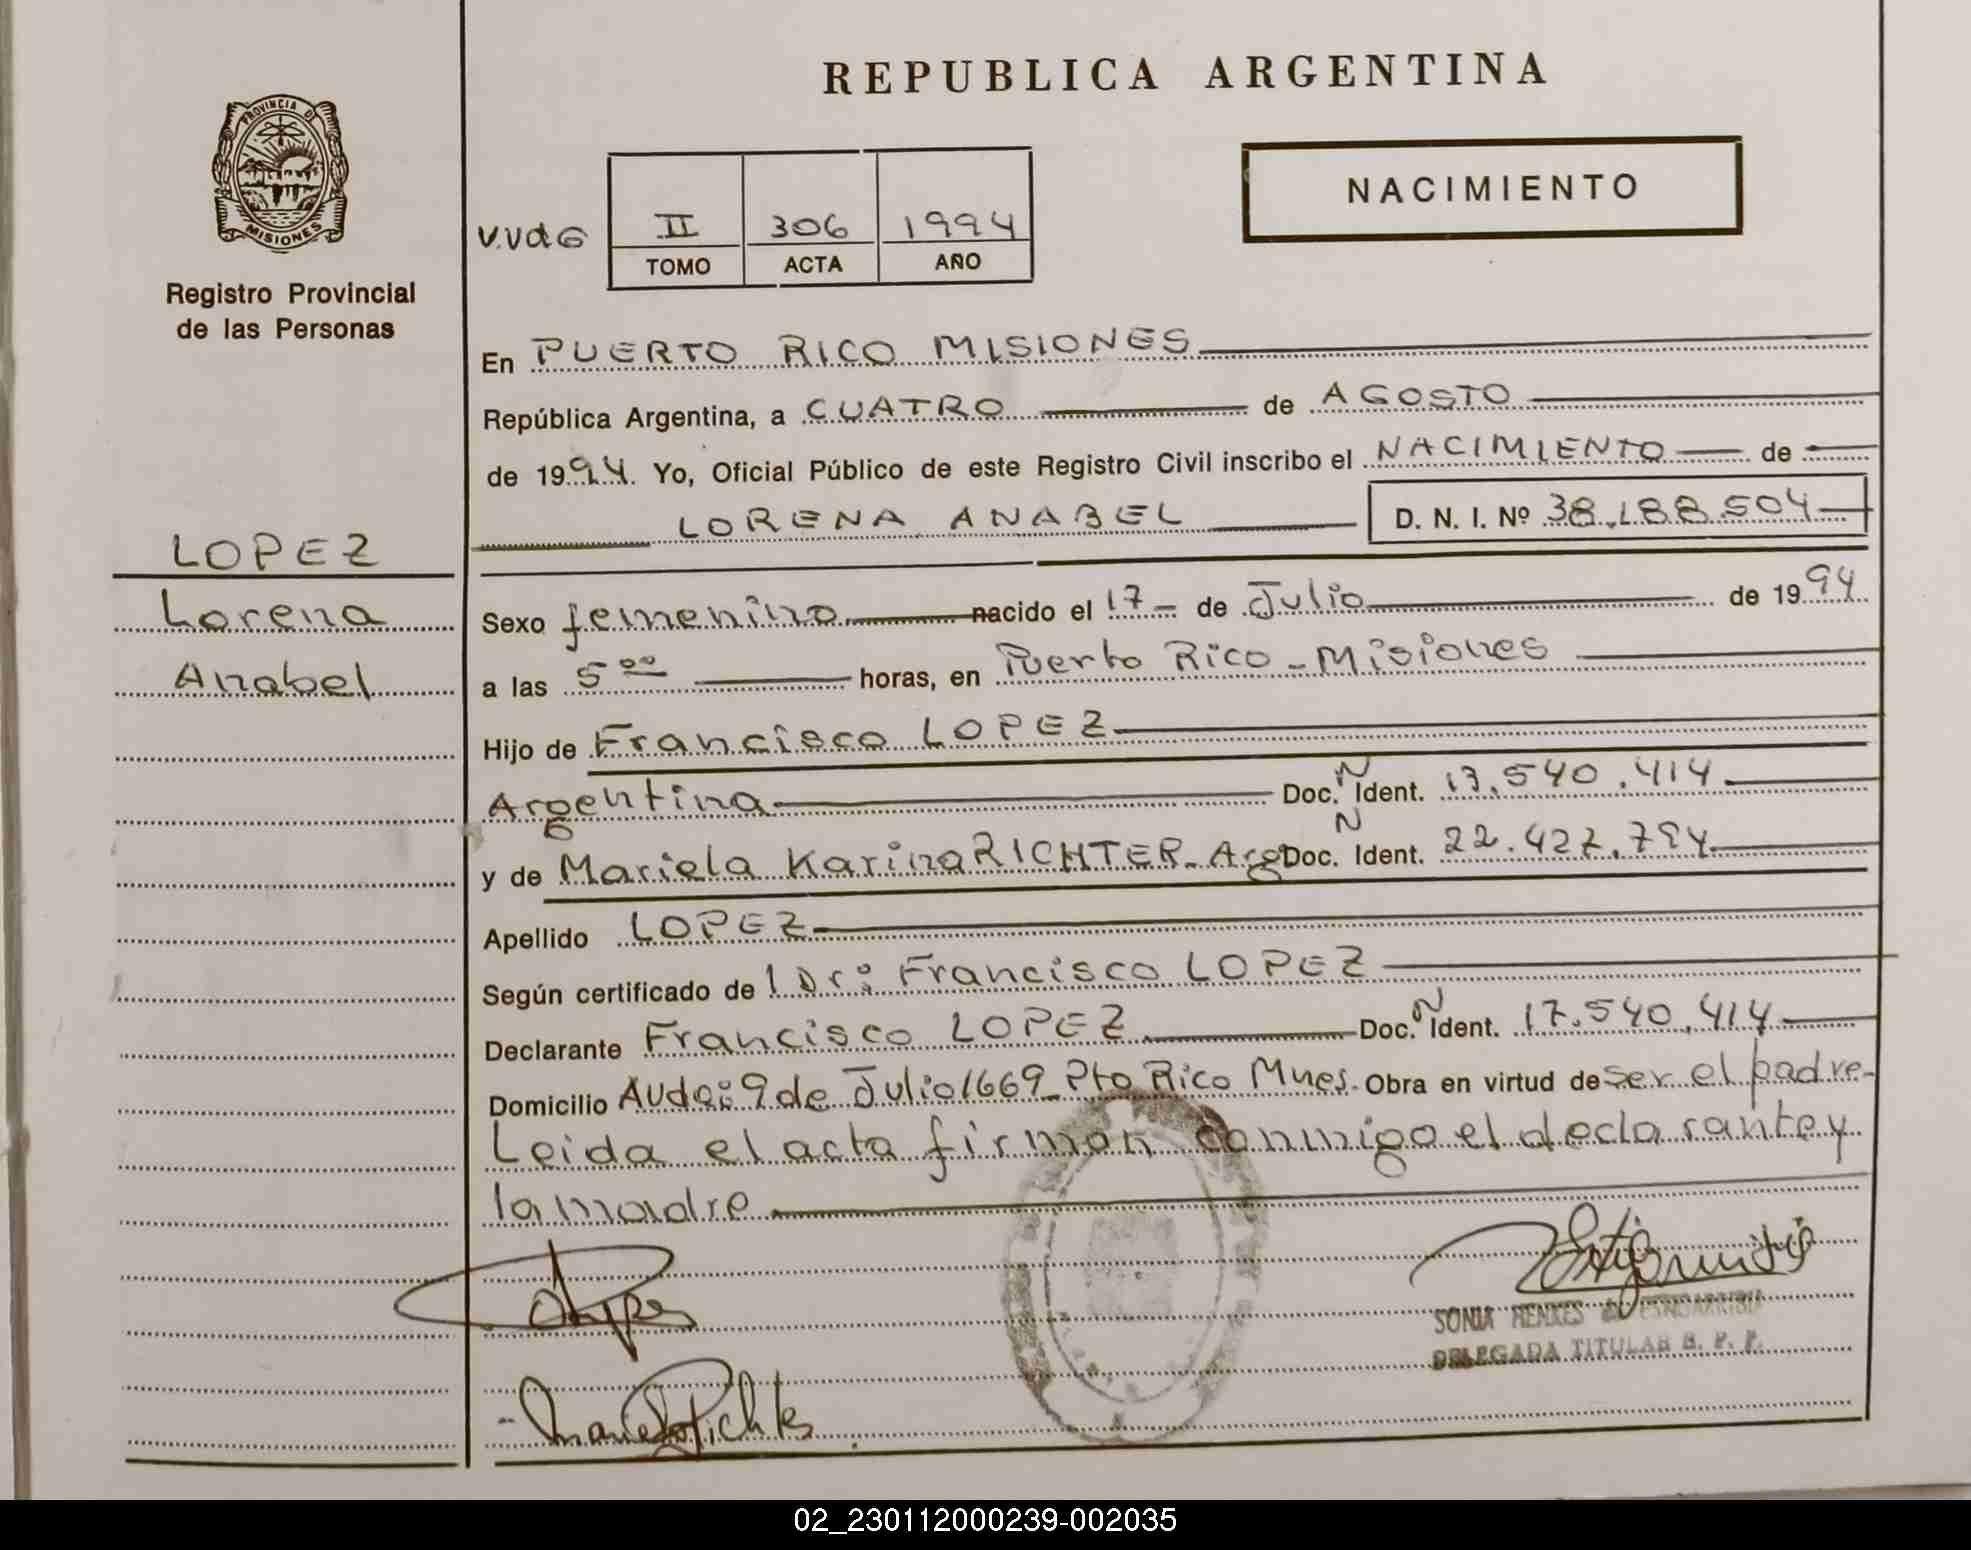 REPUBLICA ARGENTINA
PROVINCIA DE
MISIONES
Registro Provincial
de las Personas
NACIMIENTO
V.VdG
II 306 1994
TOMO ACTA AÑO
En PUERTO RICO MISIONES
República Argentina, a CUATRO de AGOSTO
de 1994. Yo, Oficial Público de este Registro Civil inscribo el NACIMIENTO de
LORENA ANABEL D. N. I. Nº 38.188.504
LOPEZ
Lorena
Anabel
Sexo femenino nacido el 17 de Julio de 1994
a las 5 00 horas, en Puerto Rico - Misiones
Hijo de Francisco LOPEZ
Argentina Doc. N Ident. 17.540.414
y de Mariela Karina RICHTER - Arg Doc. N Ident. 22.427.794
Apellido LOPEZ
Según certificado de l Dr: Francisco LOPEZ
Declarante Francisco LOPEZ Doc. N Ident. 17.540.414
Domicilio Avda: 9 de Julio 1669 Pto Rico Mnes. Obra en virtud de ser el padre-
Leida el acta firman conmigo el declarante y
la madre
SONIA
DELEGADA TITULAR R. P. P.
02_230112000239-002035